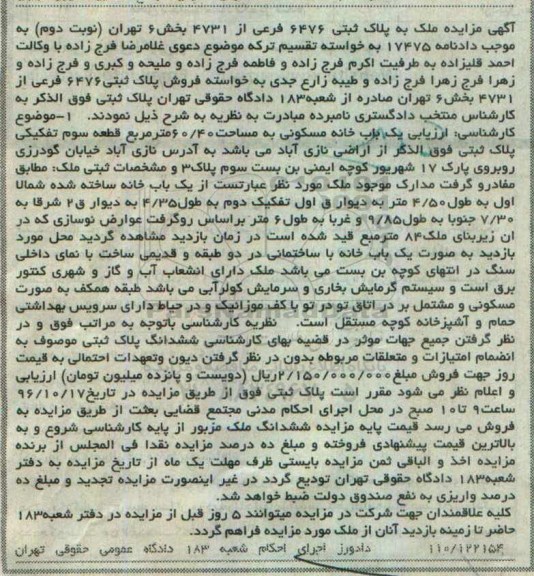 آگهی مزایده ملک به پلاک ثبتی ۶۴۷۶ فرعی از ۴۷۳۱ بخش۶ تهران (نوبت دوم) به
موجب دادنامه ۱۷۴۷۵ به خواسته تقسیم ترکه موضوع دعوی غلامرضا فرج زاده با وکالت
احمد قلیزاده به طرفیت اکرم فرج زاده و فاطمه فرج زاده و ملیحه و کبری و فرج زاده و
زهرا فرج زهرا فرج زاده و طیبه زارع جدی به خواسته فروش پلاک ثبتی۶۴۷۶ فرعی از
۴۷۳۱ بخش۶ تهران صادره از شعبه۱۸۳ دادگاه حقوقی تهران پلاک ثبتی فوق الذکر به
کارشناس منتخب دادگستری نامبرده مبادرت به نظریه به شرح ذیل نمودند. ۱-موضوع
کارشناسی: ارزیابی یک باب خانه مسکونی به مساحت۶۰/۴۰مترمربع قطعه سوم تفکیکی
پلاک ثبتی فوق الذکر از اراضی نازی آباد می باشد به آدرس نازی آباد خیابان گودرزی
روبروی پارک ۱۷ شهریور کوچه ایمنی بن بست سوم پلاک۳ و مشخصات ثبتی ملک: مطابق
مفادرو گرفت مدارک موجود ملک مورد نظر عبارتست از یک باب خانه ساخته شده شمالا
اول به طول۴/۵۰ متر به دیوار ق اول تفکیک دوم به طول۴/۳۵ به دیوار ق۲ شرقا به
۷/۳۰ جنوبا به طول۹/۸۵ و غربا به طول۶ متر براساس روگرفت عوارض نوسازی که در
ان زیربنای ملک۸۴ مترمبع قید شده است در زمان بازدید مشاهده گردید محل مورد
بازدید به صورت یک باب خانه با ساختمانی در دو طبقه و قدیمی ساخت با نمای داخلی
سنگ در انتهای کوچه بن بست می باشد ملک دارای انشعاب آب و گاز و شهری کنتور
برق است و سیستم گرمایش بخاری و سرمایش کولرآبی می باشد طبقه همکف به صورت
مسکونی و مشتمل بر در اتاق تو در تو با کف موزائیک و در حیاط دارای سرویس بهداشتی
حمام و آشپزخانه کوچه مستقل است. نظریه کارشناسی باتوجه به مراتب فوق و در
نظر گرفتن جمیع جهات موثر در قضیه بهای کارشناسی ششدانگ پلاک ثبتی موصوف به
انضمام امتیازات و متعلقات مربوطه بدون در نظر گرفتن دیون وتعهدات احتمالی به قیمت
روز جهت فروش مبلغ۲/۱۵۰/۰۰۰/۰۰۰ریال (دویست و پانزده میلیون تومان) ارزیابی
و اعلام نظر می شود مقرر است پلاک ثبتی فوق از طریق مزایده در تاریخ۹۶/۱۰/۱۷
ساعت۹ تا۱۰ صبح در محل اجرای احکام مدنی مجتمع قضایی بعثت از طریق مزایده به
فروش می رسد قیمت پایه مزایده ششدانگ ملک مزبور از پایه کارشناسی شروع و به
بالاترین قیمت پیشنهادی فروخته و مبلغ ده درصد مزایده نقدا فی المجلس از برنده
مزایده اخذ و الباقی ثمن مزایده بایستی ظرف مهلت یک ماه از تاریخ مزایده به دفتر
شعبه۱۸۳ دادگاه حقوقی تهران تودیع گردد در غیر اینصورت مزایده تجدید و مبلغ ده
درصد واریزی به نفع صندوق دولت ضبط خواهد شد.
کلیه علاقمندان جهت شرکت در مزایده میتوانند ۵ روز قبل از مزایده در دفتر شعبه۱۸۳
حاضر تا زمینه بازدید آنان از ملک مورد مزایده فراهم گردد.
۱۱۰/۱۲۲۱۵۴ دادورز اجرای احکام شعبه ۱۸۳ دادگاه عمومی حقوقی تهران